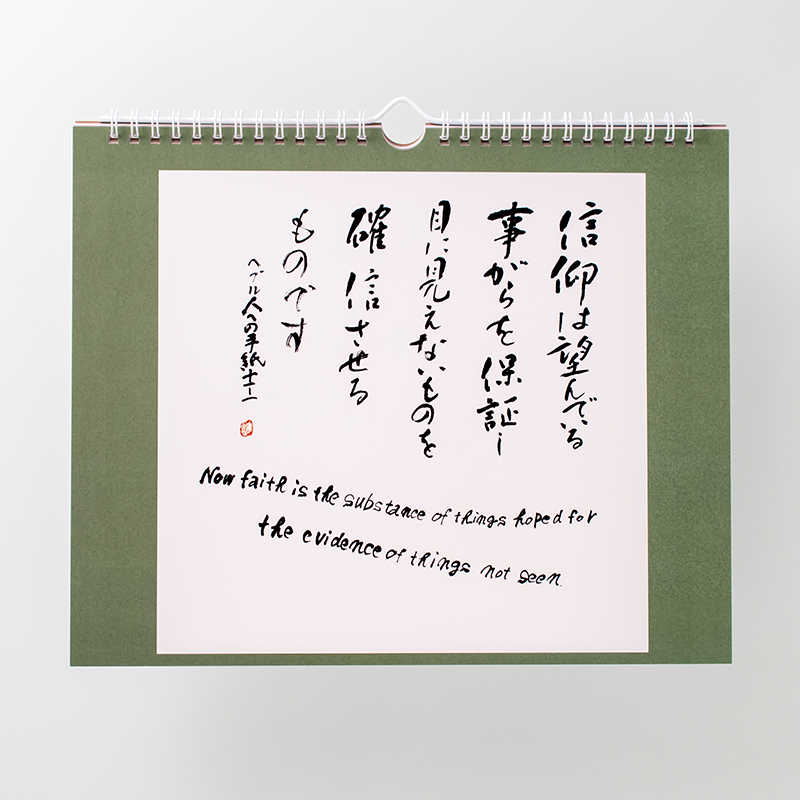 信仰は望んでいる
事がらを保証し
目に見えないものを
確信させる
ものです
ヘブル人への手紙十一ノ一
Now faith is the substance of things hoped for
the evidence of things not seen.